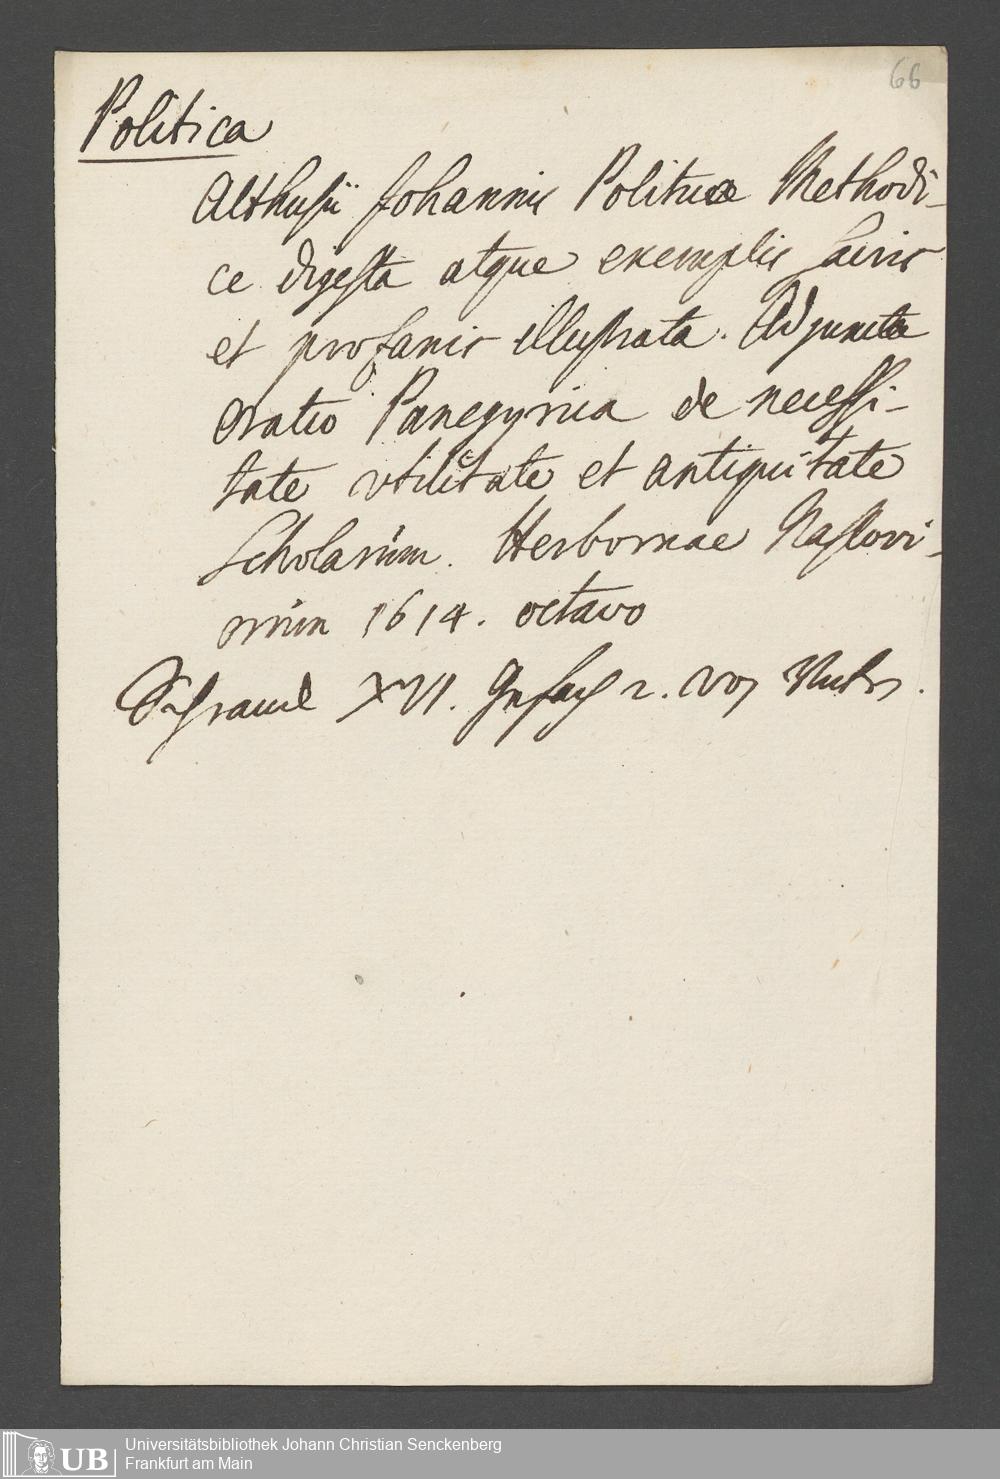 66
Politica
Althusii Johannis Politicae Methodi-
ce digesta atque exemplis sacris
et profanis illustrata. Adjuncta
oratio Panegyrica de necessi-
tate vtilitate et antiquitate
Scholarum. Herbornae Nassovi-
orum 1614. octavo
Schranck XVI. Gefach 2. von Unten.
UB Universitätsbibliothek Johann Christian Senckenberg
Frankfurt am Main